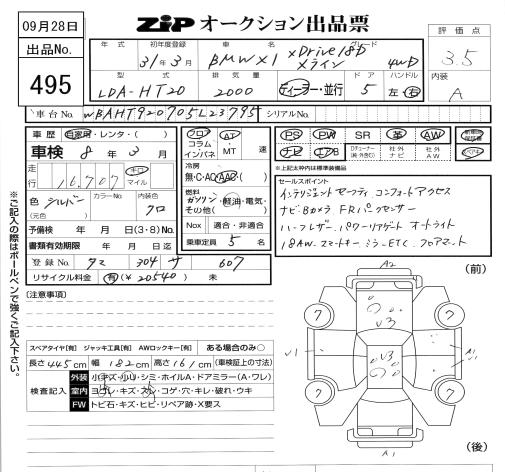 09月28日
ZIP オークション出品票
出品No. 495
評価点 3.5
内装 A
年式 初年度登録 車名 グレード
31年3月 BMW X1 xDrive18D xライン 4WD
型式 排気量 ドア ハンドル
LDA-HT20 2000 ディーラー・並行 5 左・右
車台No. WBAHT920705L23795 シリアルNo.
車歴 自家用・レンタ・( )
車検 8年3月
走行 16,707 キロ マイル
色 シルバー カラーNo. 内装色 クロ
(元色)
予備検 年 月 日(3・8)No.
書類有効期限 年 月 日迄
登録No. 304 サ 607
リサイクル料金 有(¥20540) 未
フロア コラム インパネ AT・MT 速
冷房 無・C・AC・AAC・( )
燃料 ガソリン・軽油・電気・その他( )
Nox 適合・非適合
乗車定員 5 名
PS PW SR 革 AW
ナビ エアB 社外ナビ 社外AW
※上記太枠内は標準装備品
セールスポイント
インテリジェントセーフティ コンフォートアクセス
ナビBカメラ FRパークセンサー
ハーフレザー パワーリヤゲート オートライト
18AW スマートキー ミラーETC フロアマット
(注意事項)
スペアタイヤ[有] ジャッキ工具[有] AWロックキー[有] ある場合のみ○
長さ445cm 幅182cm 高さ161cm (車検証上の寸法)
検査記入
外装 小キズ・小U・シミ・ホイルA・ドアミラー(A・ワレ)
室内 ヨゴレ・キズ・スレ・コゲ・穴・キレ・破れ・ウキ
FW トビ石・キズ・ヒビ・リペア跡・X要ス
※ご記入の際はボールペンで強くご記入下さい。
A2
(前)
7 7
V3
V1 V3 A1
7 7
A1
(後)